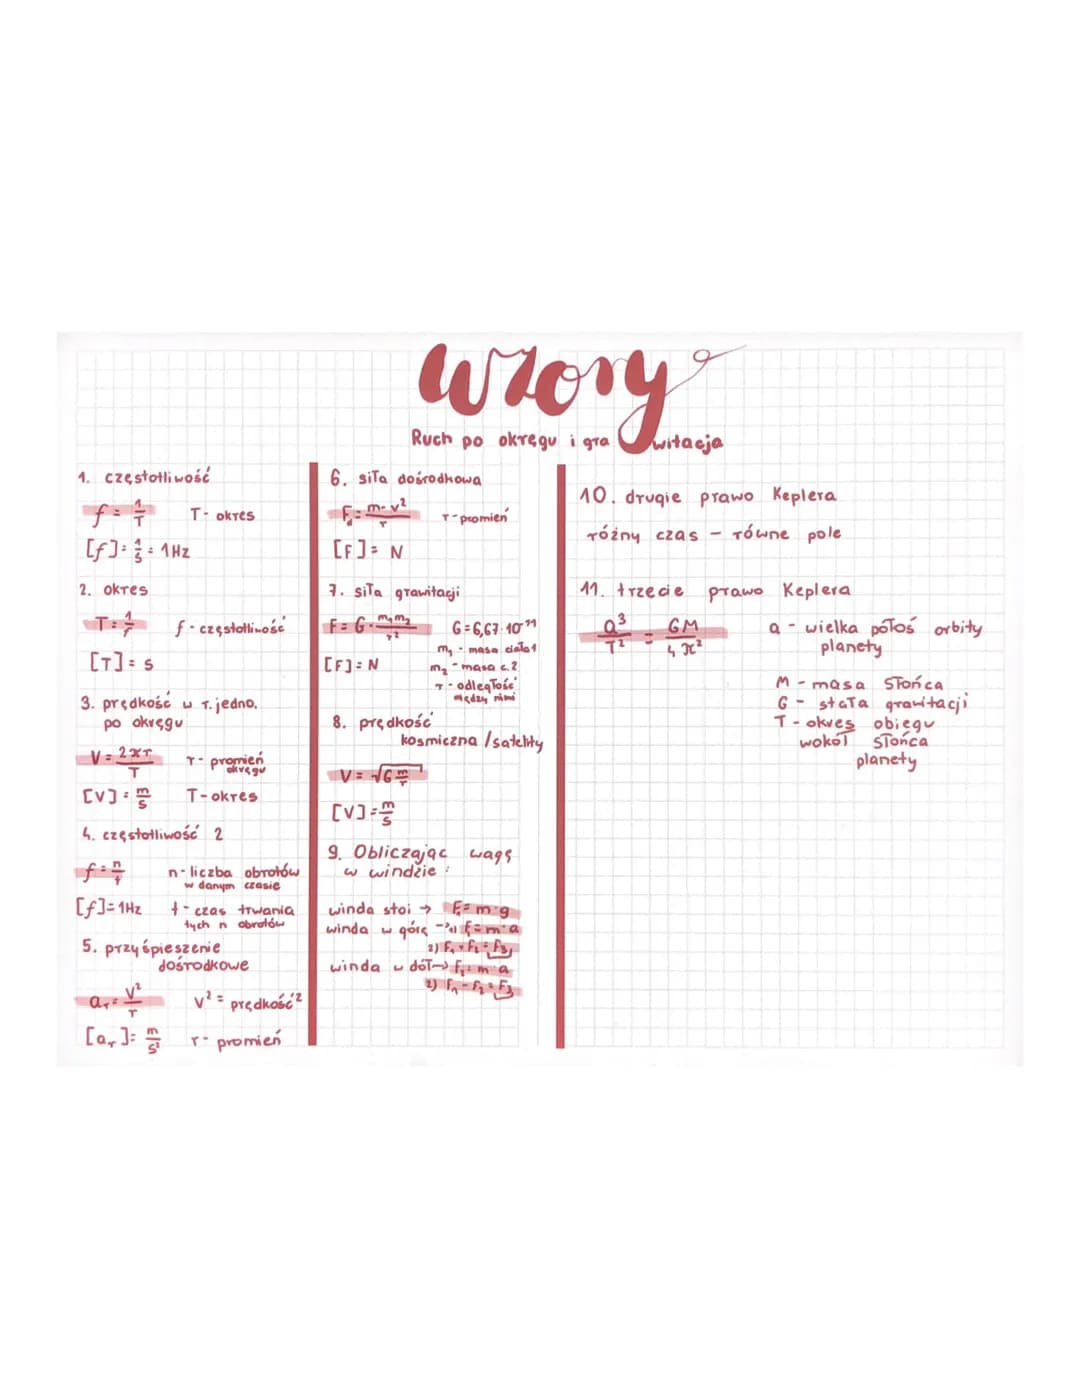 Wzory
Ruch po okręgu i grawitacja
1. częstotliwość
f = 1/T T - okres
[f] = 1/s = 1Hz
2. okres
T = 1/f f - częstotliwość
[T] = s
3. prędkość w r. jedno.
po okręgu
V = 2πr/T r - promień
okręgu
[V] = m/s T - okres
4. częstotliwość 2
f = n/t n - liczba obrotów
w danym czasie
[f] = 1Hz t - czas trwania
tych n obrotów
5. przyśpieszenie
dośrodkowe
ar = V²/r V² = prędkość²
[ar] = m/s² r - promień
6. siła dośrodkowa
Fd = m·v²/r r - promień
[F] = N
7. siła grawitacji
F = G · m₁m₂/r² G = 6,67·10⁻¹¹
m₁ - masa ciała 1
[F] = N m₂ - masa c. 2
r - odległość
między nimi
8. prędkość
kosmiczna / satelity
V = √G m/r
[V] = m/s
9. Obliczając wagę
w windzie :
winda stoi → F = m·g
winda w górę → 1) F = m·a
2) F₁ + F₂ = F₃
winda w dół → F = m·a
2) F₁ - F₂ = F₃
10. drugie prawo Keplera
różny czas – równe pole
11. trzecie prawo Keplera
a³/T² = GM/4π² a - wielka połoś orbity
planety
M - masa Słońca
G - stała grawitacji
T - okres obiegu
wokół Słońca
planety